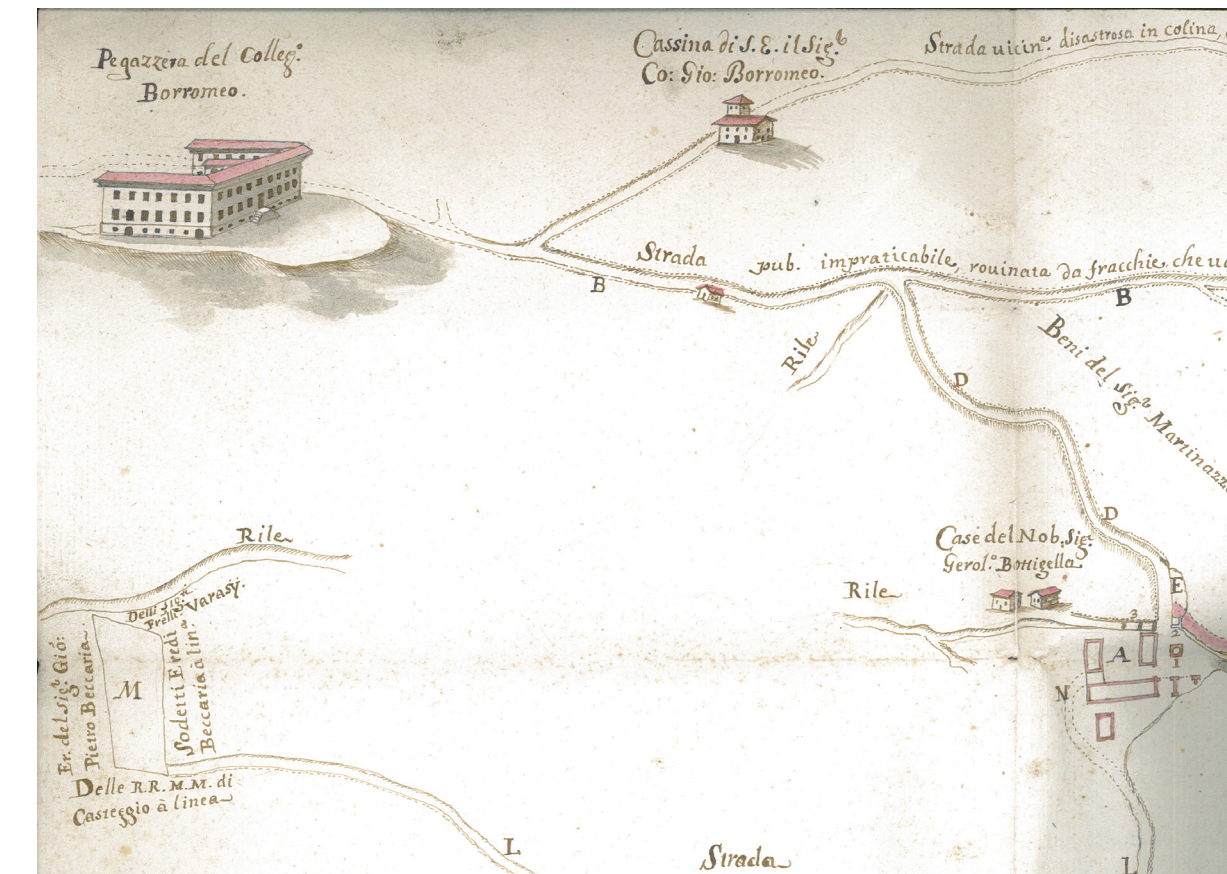 Pegazzera del Colleg.º
Borromeo.
Cassina di S. E. il Sig.
Co: Gio: Borromeo.
Strada uicin.e disastrosa in colina,
Strada pub. impraticabile, rouinata da fracchie, che ua
B
B
Rile
D
Beni del Sig. Martinazz
D
Case del Nob. Sig.
Gerol.º Bottigella
E
Rile
3
A
2
1
N
Rile
Delli Sig.
Frelli Varasy.
Er. del Sig. Gió:
Pietro Beccaria
M
Sodetti Eredi
Beccaria à lin.a
Delle R.R. M.M. di
Casteggio à linea
L
Strada
L